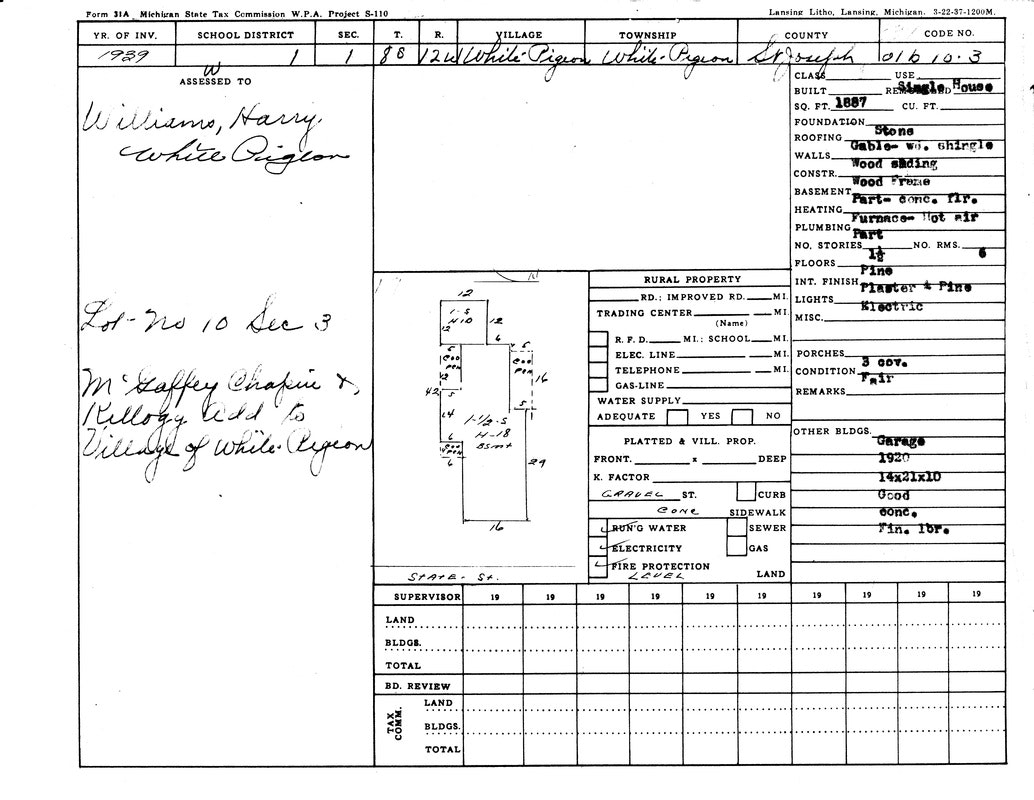 Form 31A Michigan State Tax Commission W.P.A. Project S-110
Lansing Litho, Lansing, Michigan. 3-22-37-1200M.
YR. OF INV. SCHOOL DISTRICT SEC. T. R. VILLAGE TOWNSHIP COUNTY CODE NO.
1939 1 1 8S 12W White-Pigeon White-Pigeon St Joseph 01b 10-3
W
ASSESSED TO
Williams, Harry.
White Pigeon
Lot-No 10 Sec 3
McGaffey Chapin &,
Kellogg add to
Village of White-Pigeon
12
1-S
H10
12
12
6
5
5
OPEN
OPEN
12
16
42
5
5
14
1-1/2-S
H-18
BSMT
6
6
29
16
STATE- St.
RURAL PROPERTY
RD.; IMPROVED RD. MI.
TRADING CENTER MI.
(Name)
R. F. D. MI.; SCHOOL MI.
ELEC. LINE MI.
TELEPHONE MI.
GAS-LINE
WATER SUPPLY
ADEQUATE YES NO
PLATTED & VILL. PROP.
FRONT. x DEEP
K. FACTOR
GRAVEL ST. CURB
CONC SIDEWALK
RUN'G WATER SEWER
ELECTRICITY GAS
FIRE PROTECTION
LEVEL LAND
CLASS USE
Single House
BUILT REMODELED
SQ. FT. 1887 CU. FT.
FOUNDATION
Stone
ROOFING
Gable- wd. shingle
WALLS
Wood siding
CONSTR.
Wood Frame
BASEMENT
Part- conc. flr.
HEATING
Furnace- Hot air
PLUMBING
Part
NO. STORIES NO. RMS.
1½ 6
FLOORS
Pine
INT. FINISH
Plaster & Pine
LIGHTS
Electric
MISC.
PORCHES
3 cov.
CONDITION
Fair
REMARKS
OTHER BLDGS.
Garage
1920
14x21x10
Good
conc.
Fin. lbr.
SUPERVISOR 19 19 19 19 19 19 19 19
LAND
BLDGS.
TOTAL
BD. REVIEW
TAX COMM.
LAND
BLDGS.
TOTAL